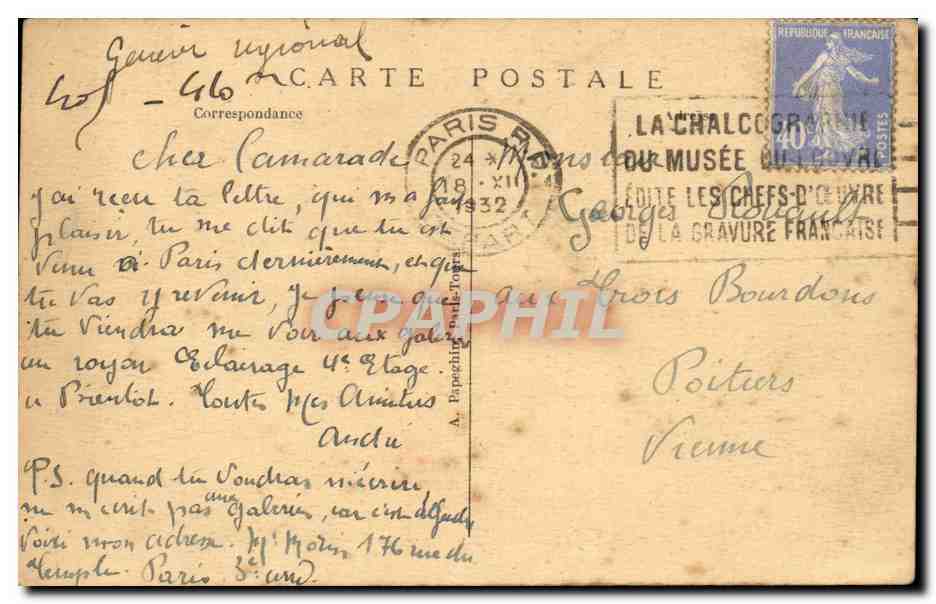 regional
CARTE POSTALE
Correspondance
Cher Camarade
j'ai recu ta lettre, qui m'a fait
plaisir, tu me dit que tu est
venu à Paris dernièrement, et que
tu vas y revenir, je pense que
tu viendra me voir aux galeries
au rayon Eclairage 4e Etage.
a Bientot. Toutes Mes Amitiés
André
P.S. quand tu voudras m'écrire,
ne m'ecrit pas aux Galeries, car c'est
Voici mon adresse. Mr Morin 176 rue du
Temple. Paris 3e arrd.
A. Papeghin, Paris-Tours
PARIS R.P.
24
18 XI
1932
DEPART
LA CHALCOGRAPHIE
DU MUSÉE DU LOUVRE
ÉDITE LES CHEFS-D'ŒUVRE
DE LA GRAVURE FRANÇAISE
REPUBLIQUE FRANÇAISE
40c
POSTES
Monsieur
Georges
aux Trois Bourdons
Poitiers
Vienne
CPAPHIL